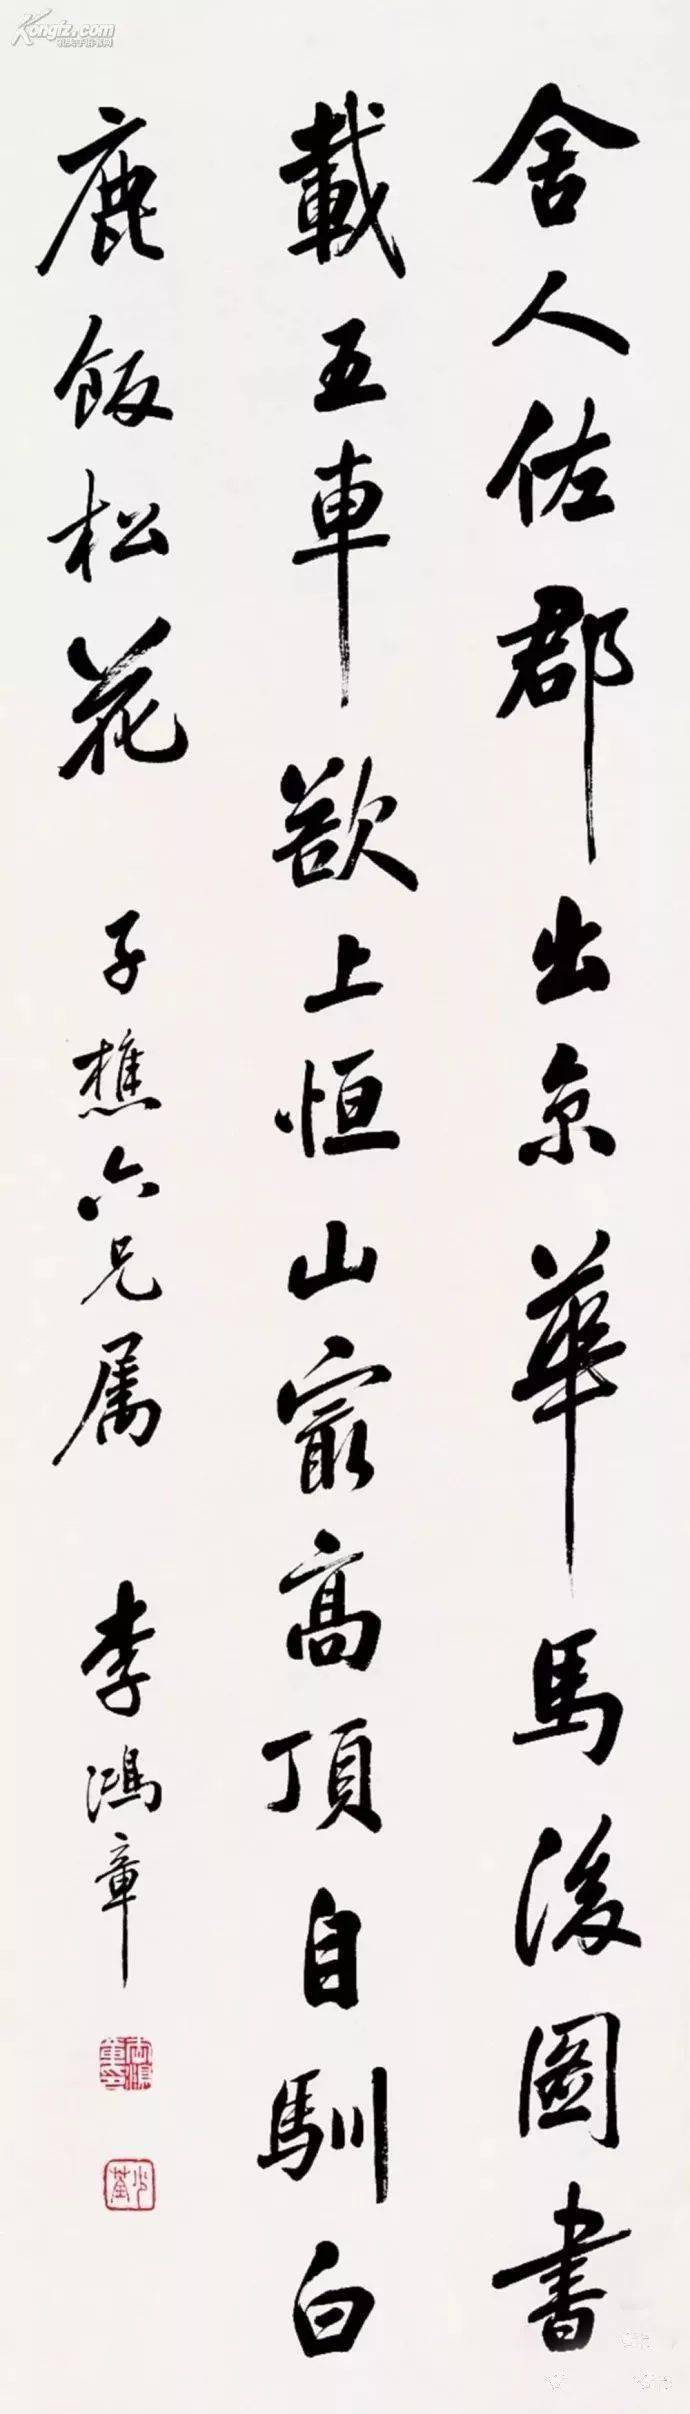 舍人佐郡出京華馬後圖書
載五車欲上恒山最高頂自馴白
鹿飯松花
子樵六兄属
李鴻章
少荃
Kongfz.com
孔夫子旧书网